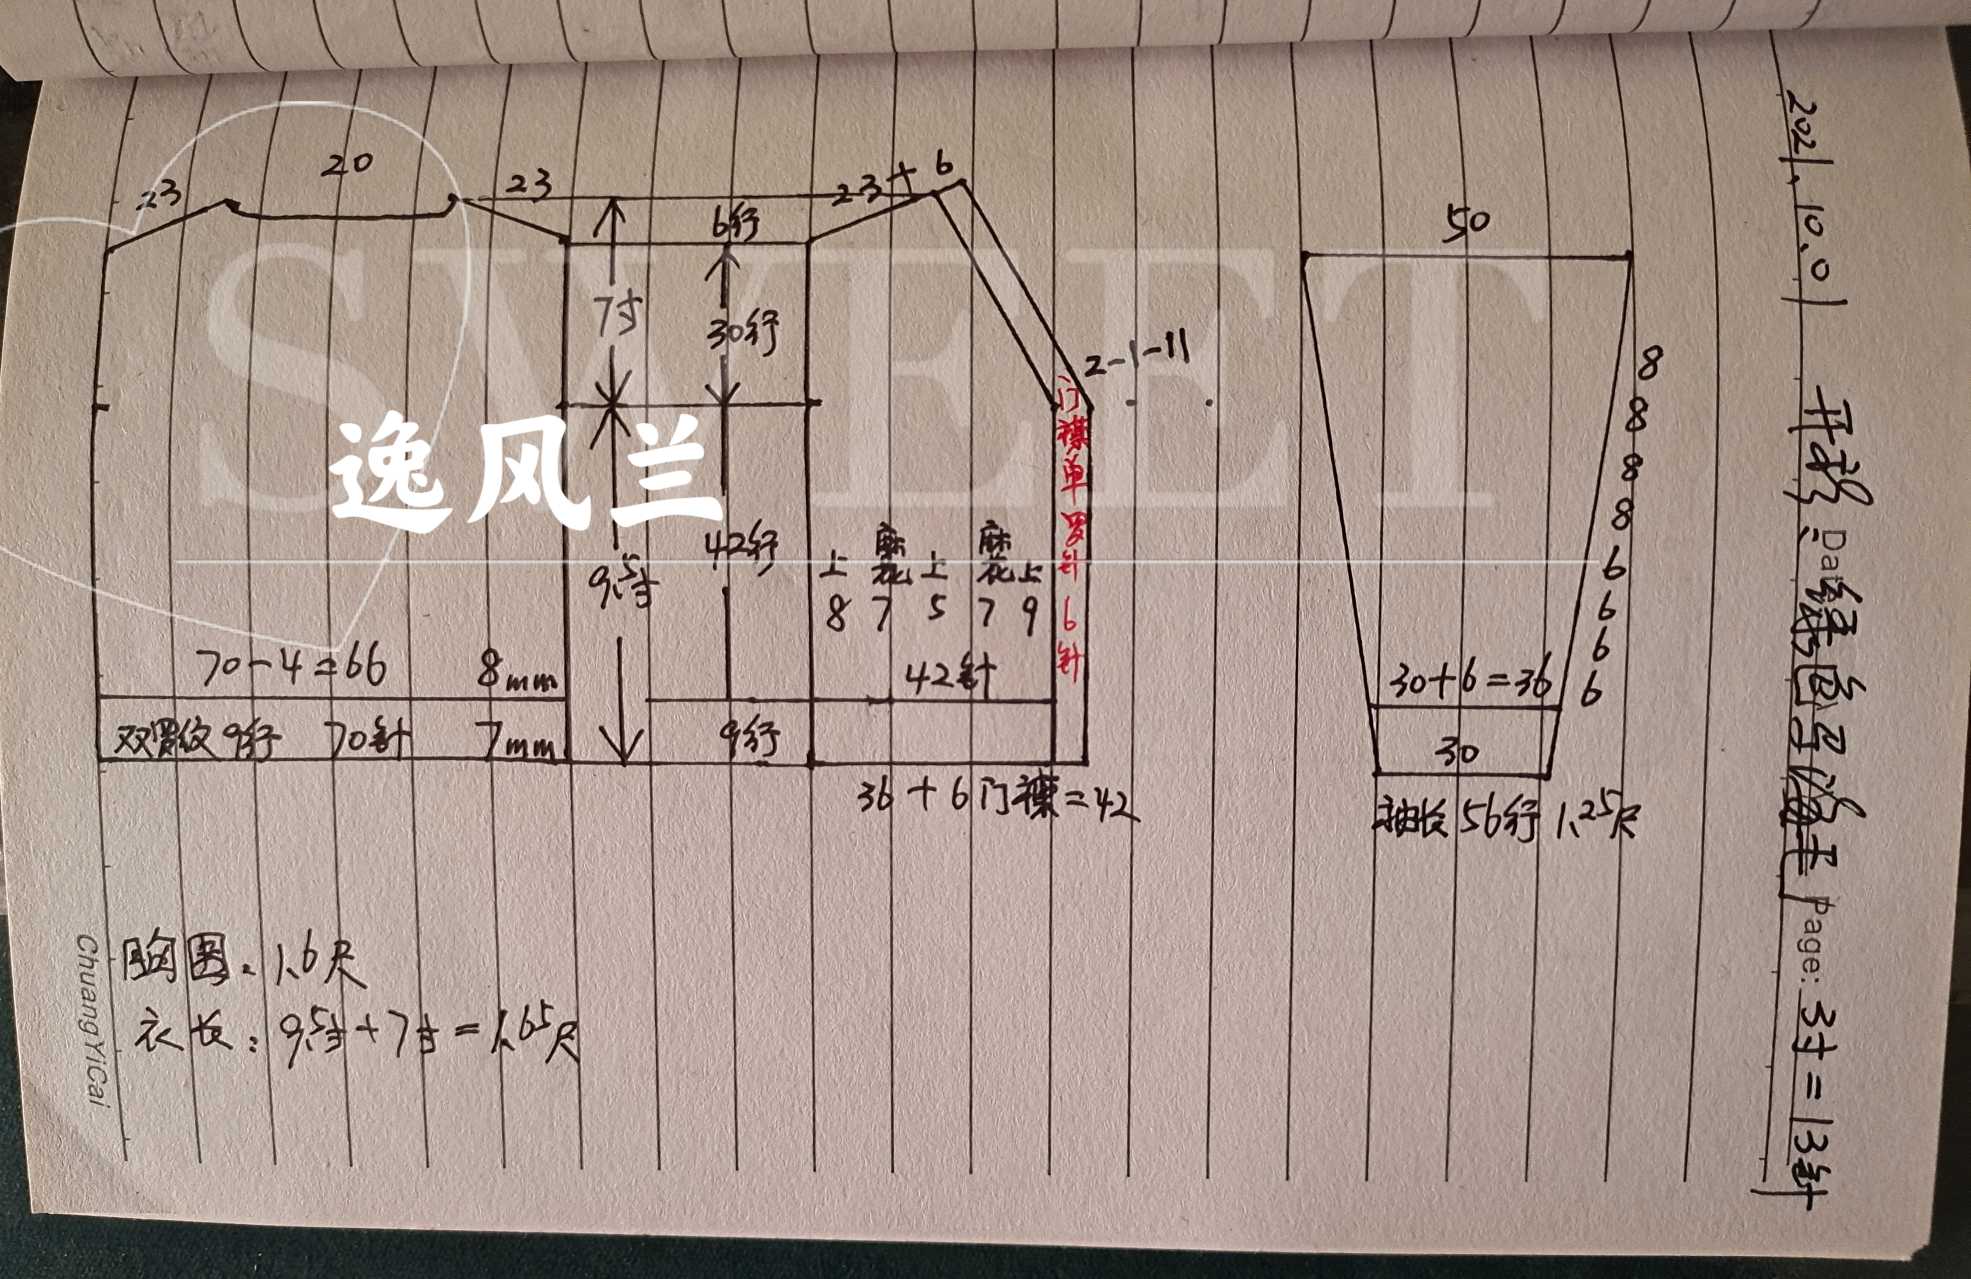 20
23
23
23+6
6行
7寸
30行
2-1-11
门襟单罗针6针
SWEET
逸风兰
42行
9.5寸
上 麻花 上 麻花 上
8 7 5 7 9
70-4=66 8mm
42针
双罗纹9行 70针 7mm
9行
36+6门襟=42
50
8
8
8
8
6
6
6
6
30+6=36
30
袖长56行 1.25尺
胸围:1.6尺
衣长:9.5寸+7寸=1.65尺
2021.10.01
开衫:绿色马海毛
3寸=13针
Page:
ChuangYiCai